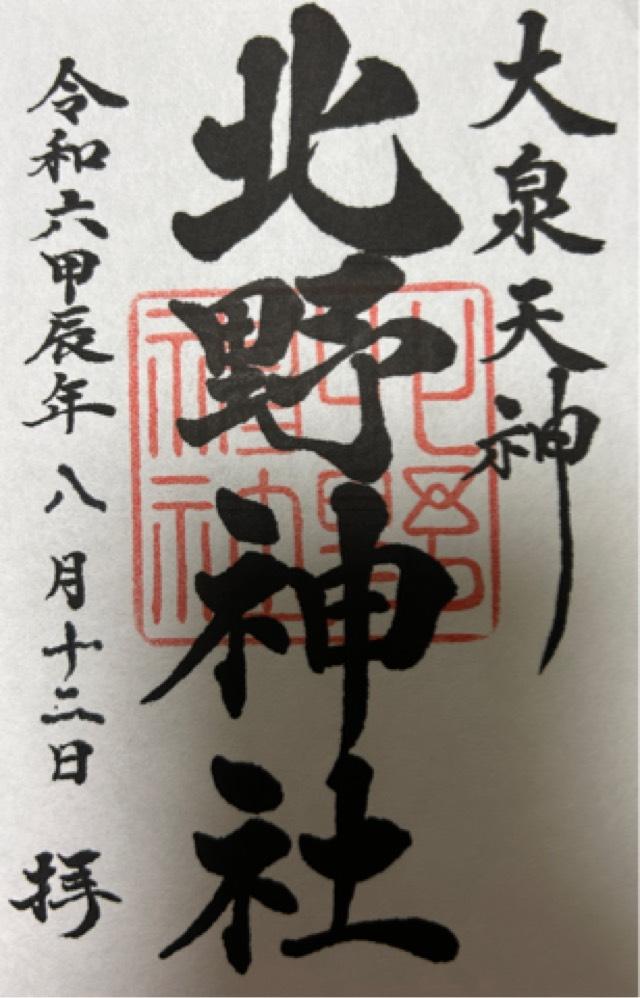 大泉天神
北野神社
令和六甲辰年八月十二日 拝